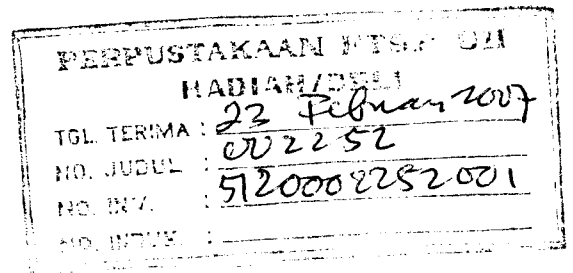 PERPUSTAKAAN FTSP UII
HADIAH/BELI
TGL. TERIMA : 23 Februari 2007
NO. JUDUL : 002252
NO. INV. : 5120002252001
NO. INDUK. :